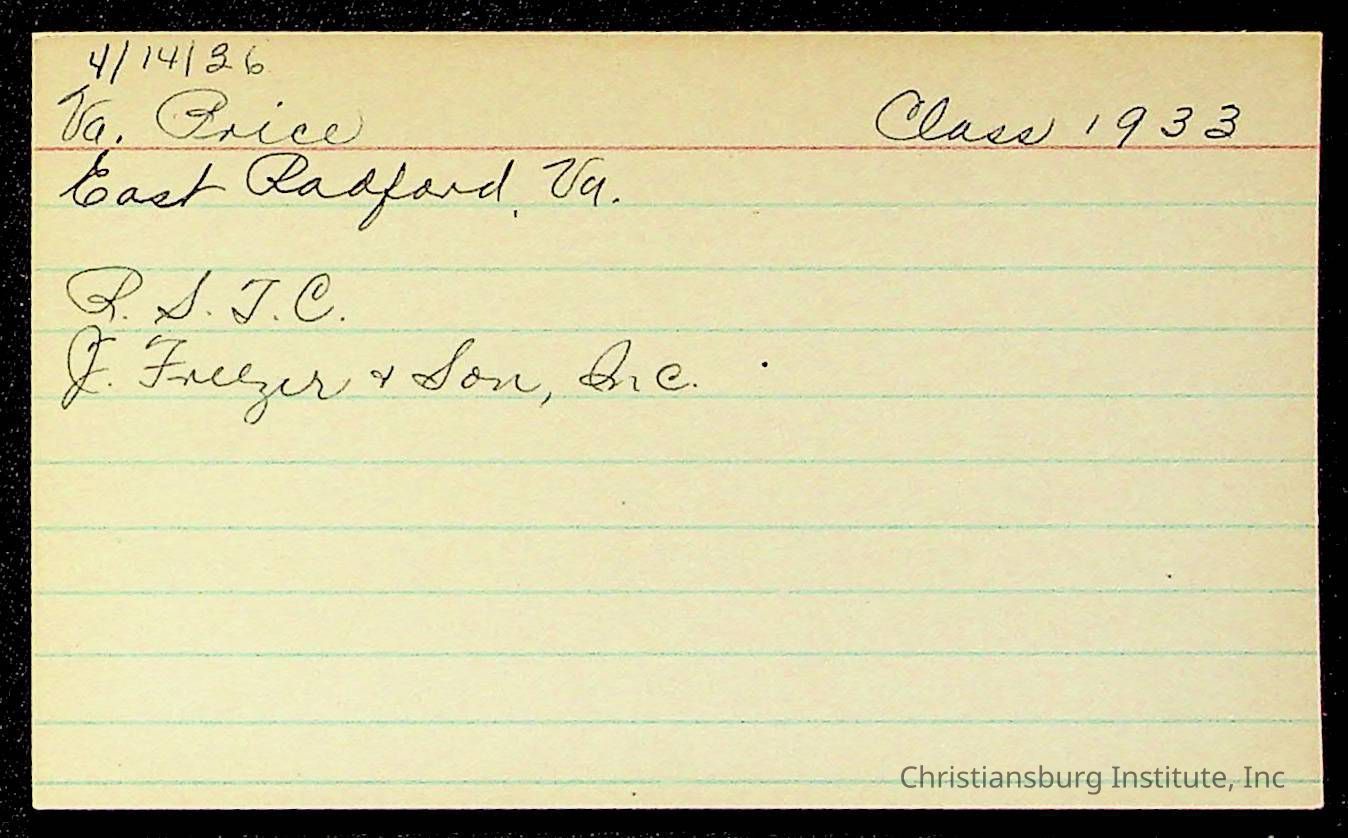 4/14/36
Va. Price Class 1933
East Radford, Va.
R. S. T. C.
J. Freezer & Son, Inc.
Christiansburg Institute, Inc